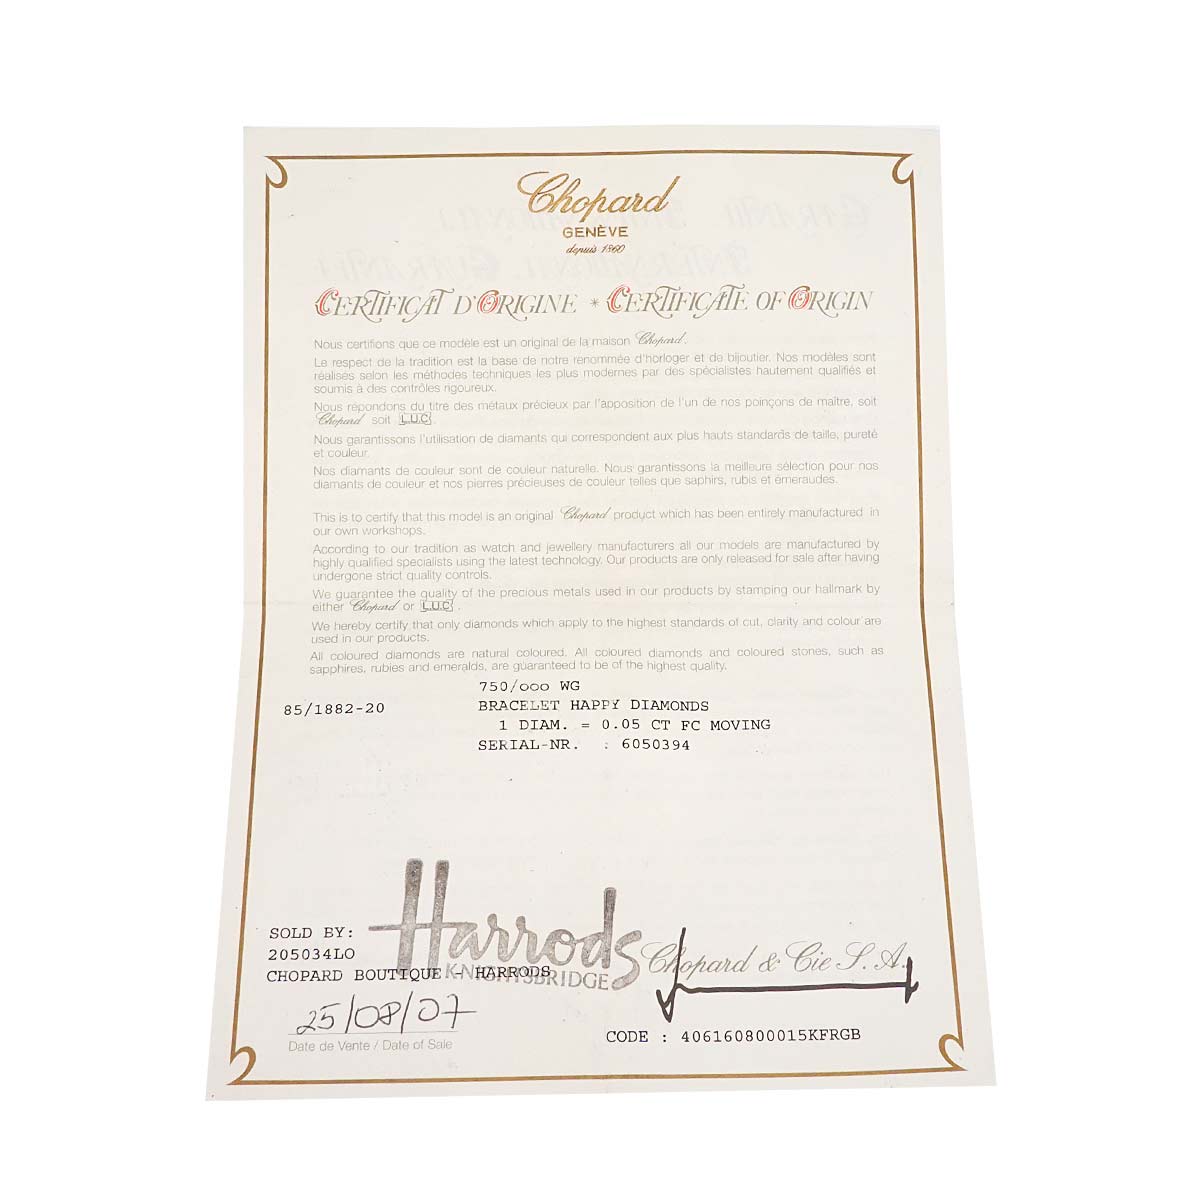 Chopard
GENÈVE
depuis 1860
CERTIFICAT D'ORIGINE * CERTIFICATE OF ORIGIN
Nous certifions que ce modèle est un original de la maison Chopard.
Le respect de la tradition est la base de notre renommée d'horloger et de bijoutier. Nos modèles sont
réalisés selon les méthodes techniques les plus modernes par des spécialistes hautement qualifiés et
soumis à des contrôles rigoureux.
Nous répondons du titre des métaux précieux par l'apposition de l'un de nos poinçons de maître, soit
Chopard soit L.U.C.
Nous garantissons l'utilisation de diamants qui correspondent aux plus hauts standards de taille, pureté
et couleur.
Nos diamants de couleur sont de couleur naturelle. Nous garantissons la meilleure sélection pour nos
diamants de couleur et nos pierres précieuses de couleur telles que saphirs, rubis et émeraudes.
This is to certify that this model is an original Chopard product which has been entirely manufactured in
our own workshops.
According to our tradition as watch and jewellery manufacturers all our models are manufactured by
highly qualified specialists using the latest technology. Our products are only released for sale after having
undergone strict quality controls.
We guarantee the quality of the precious metals used in our products by stamping our hallmark by
either Chopard or L.U.C.
We hereby certify that only diamonds which apply to the highest standards of cut, clarity and colour are
used in our products.
All coloured diamonds are natural coloured. All coloured diamonds and coloured stones, such as
sapphires, rubies and emeralds, are guaranteed to be of the highest quality.
750/ooo WG
85/1882-20 BRACELET HAPPY DIAMONDS
1 DIAM. = 0.05 CT FC MOVING
SERIAL-NR. : 6050394
Harrods
KNIGHTSBRIDGE
SOLD BY:
205034LO
CHOPARD BOUTIQUE - HARRODS
Chopard & Cie S.A.
25/08/07
Date de Vente / Date of Sale
CODE : 406160800015KFRGB